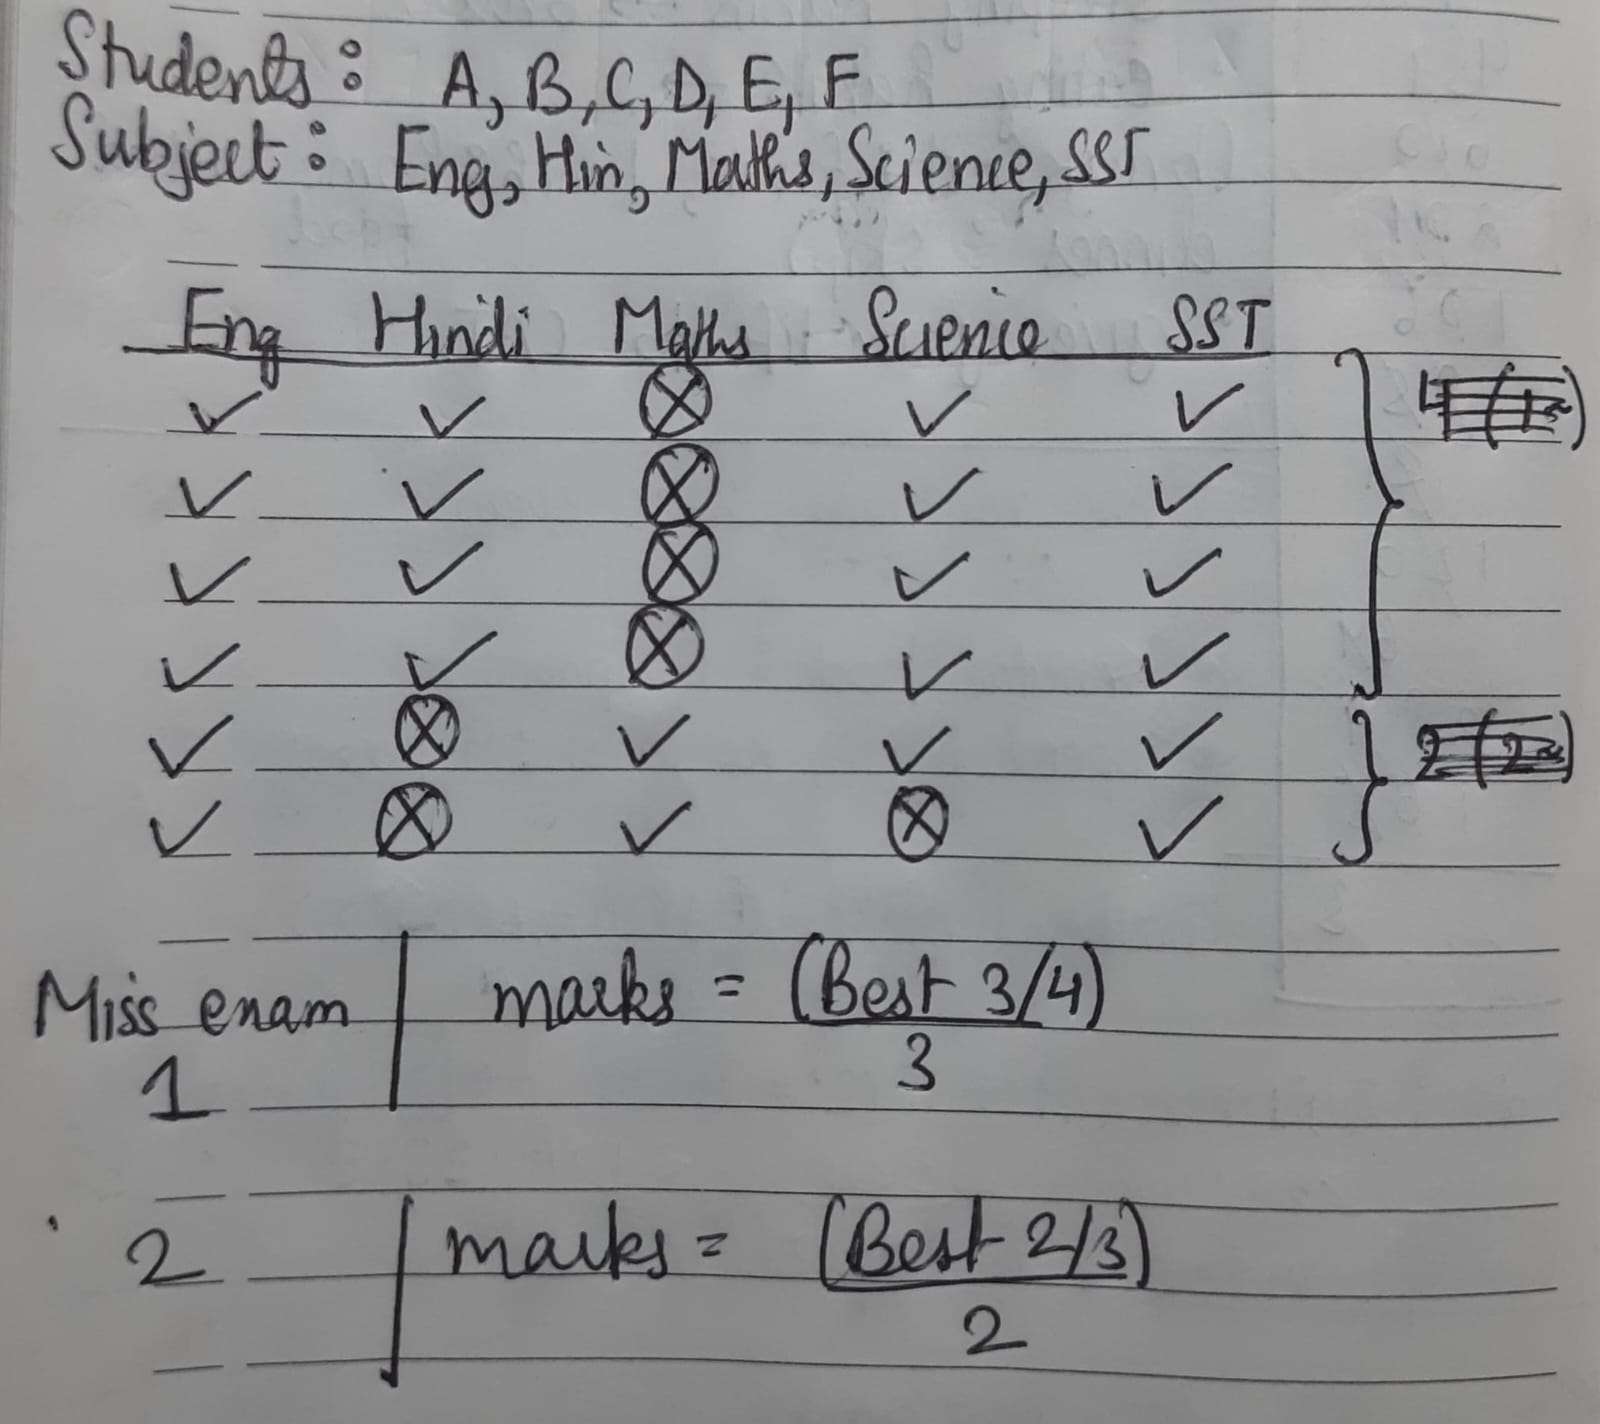 Students : A, B, C, D, E, F
Subject : Eng, Hin, Maths, Science, SST
Eng Hindi Maths Science SST
✓ ✓ ⊗ ✓ ✓
✓ ✓ ⊗ ✓ ✓
✓ ✓ ⊗ ✓ ✓
✓ ✓ ⊗ ✓ ✓
✓ ⊗ ✓ ✓ ✓
✓ ⊗ ✓ ⊗ ✓
Miss exam | marks = (Best 3/4)
1 3
2 | marks = (Best 2/3)
2